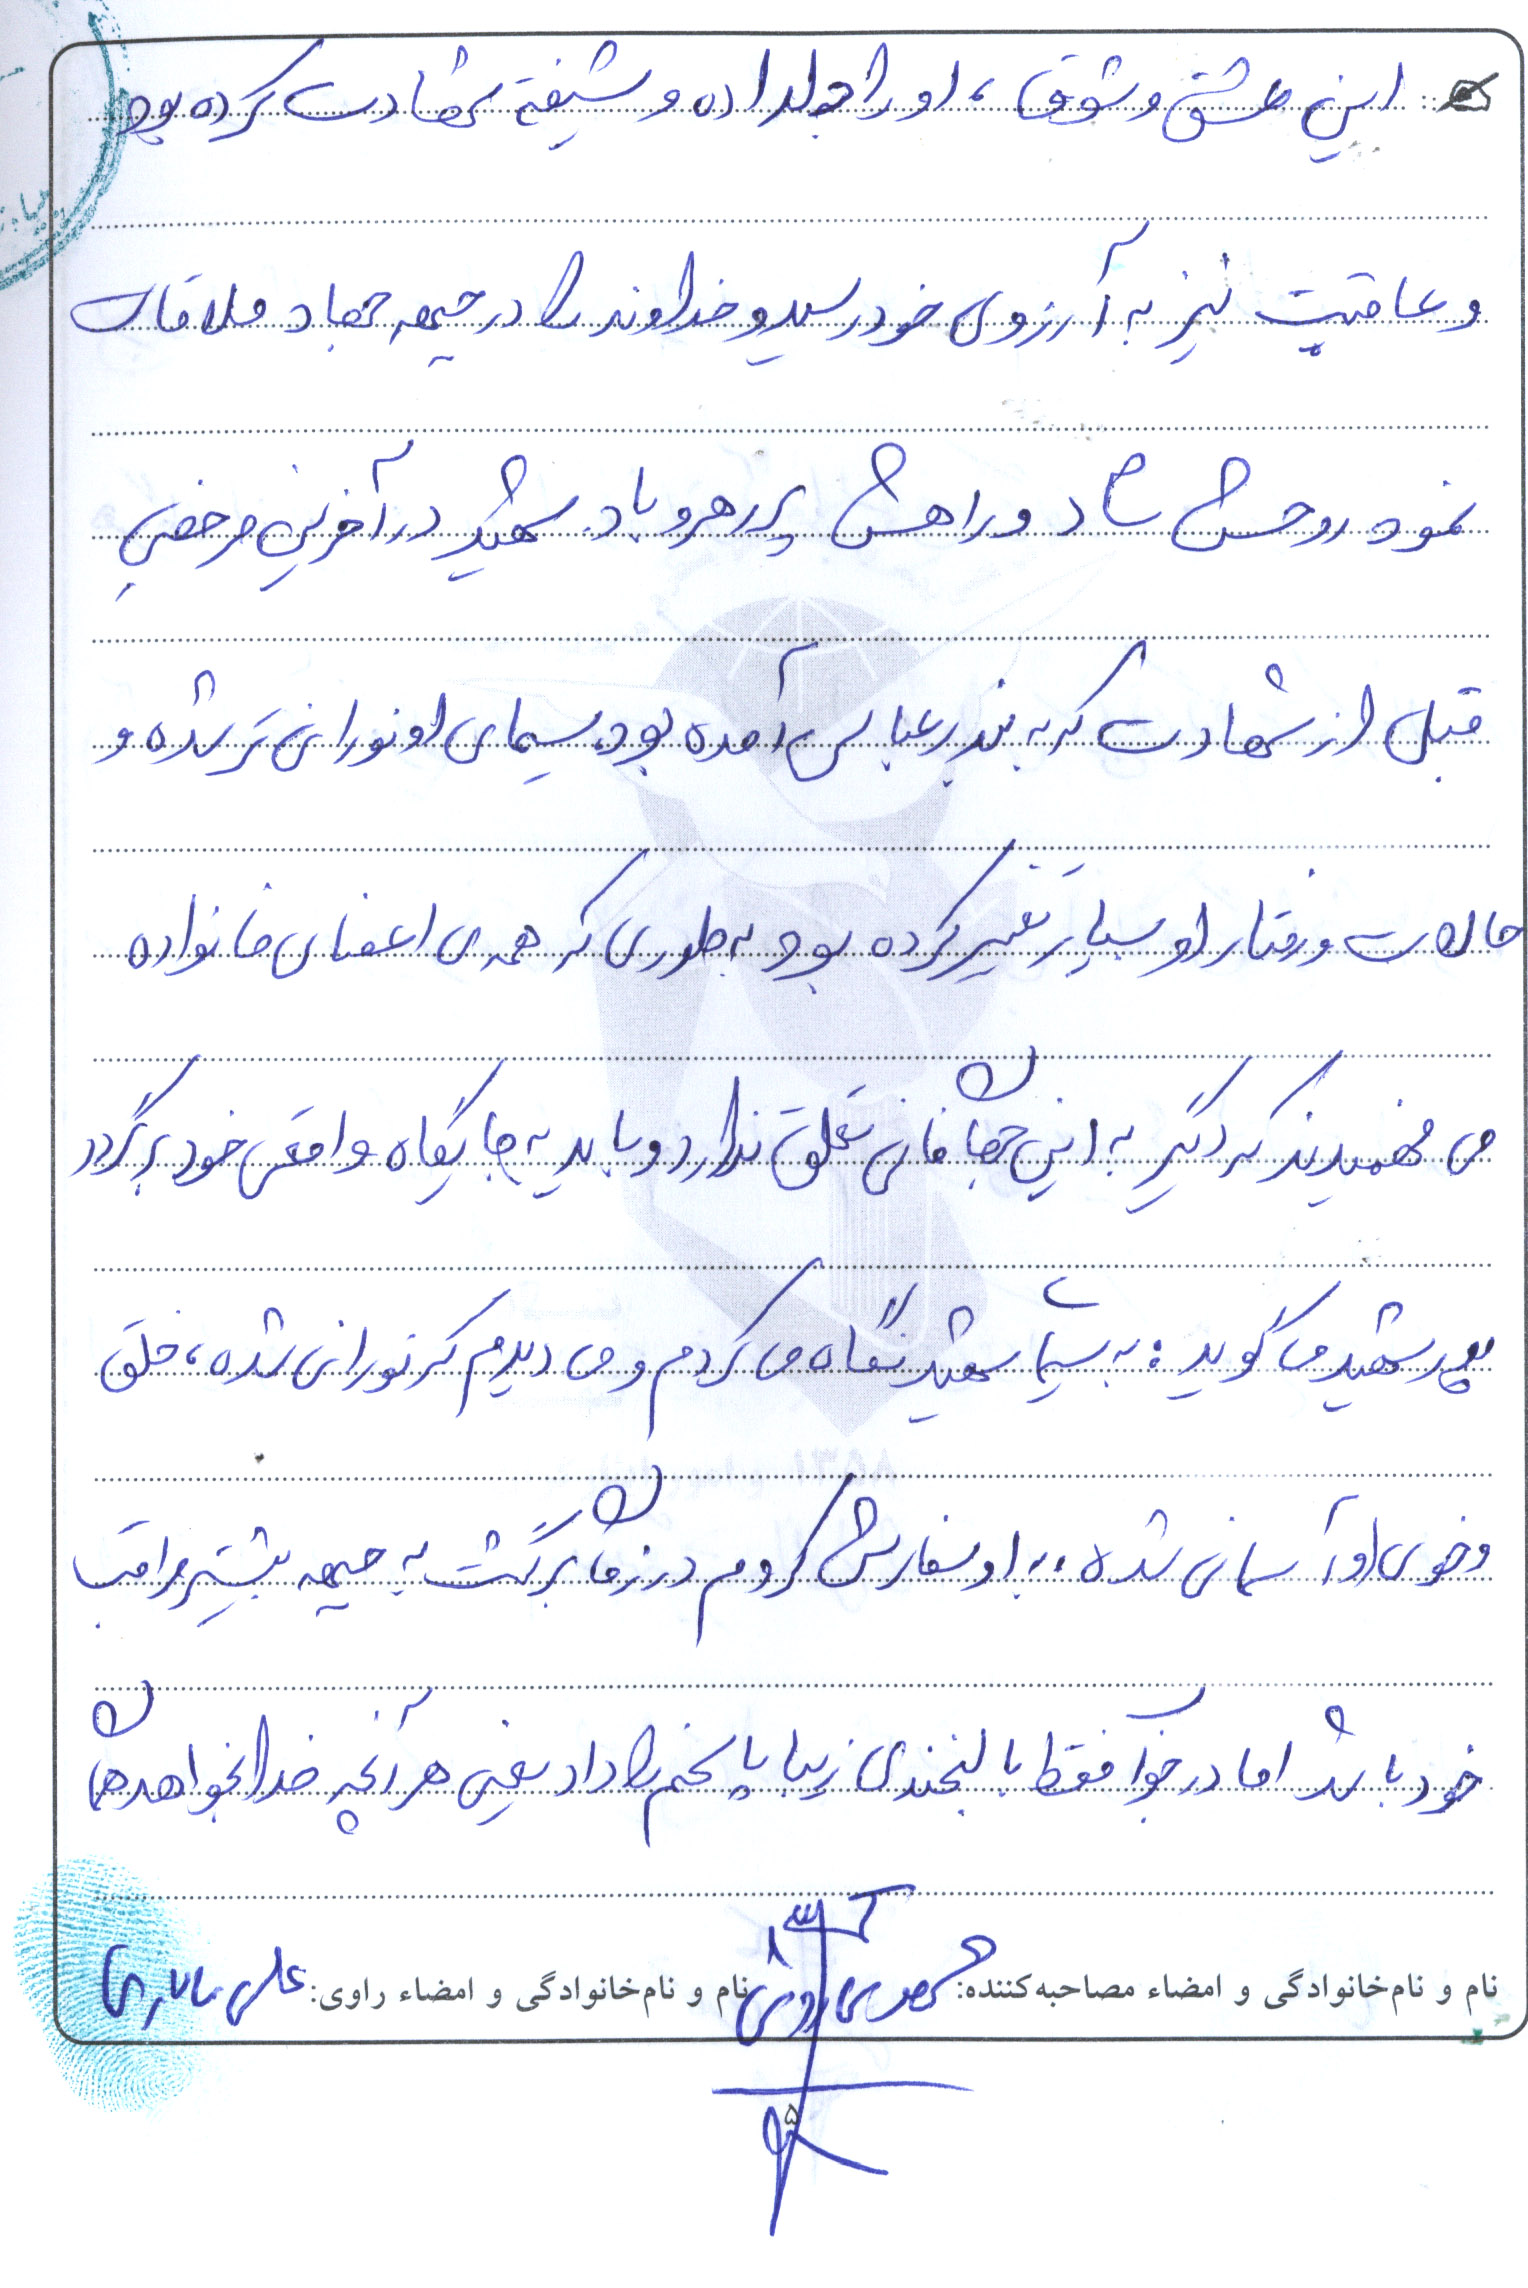 این عشق و شوق، او را جلا داده و شیفته شهادت کرده بود
و عاقبت نیز به آرزوی خود رسید و خداوند را در جبهه جهاد ملاقات
نمود روحش شاد و راهش پر رهرو باد. شهید در آخرین مرخصی
قبل از شهادت که به بندرعباس آمده بود، سیمای او نورانی تر شده و
حالات و رفتار او بسیار تغییر کرده بود به طوری که همه ی اعضای خانواده
می فهمیدند که دیگر به این جهان فانی تعلق ندارد و باید به جایگاه واقعی خود برگردد
پدر شهید می گوید: به سیمای شهید نگاه می کردم و می دیدم که نورانی شده، خلق
و خوی او آسمانی شده، به او سفارش کردم در زمان برگشت به جبهه بیشتر مراقب
خود باشد اما در جواب فقط با لبخندی زیبا پاسخم را داد یعنی هر آنچه خدا بخواهد همان
نام و نام‌خانوادگی و امضاء مصاحبه‌کننده: نام و نام‌خانوادگی و امضاء راوی: علی
۱۳۵۸